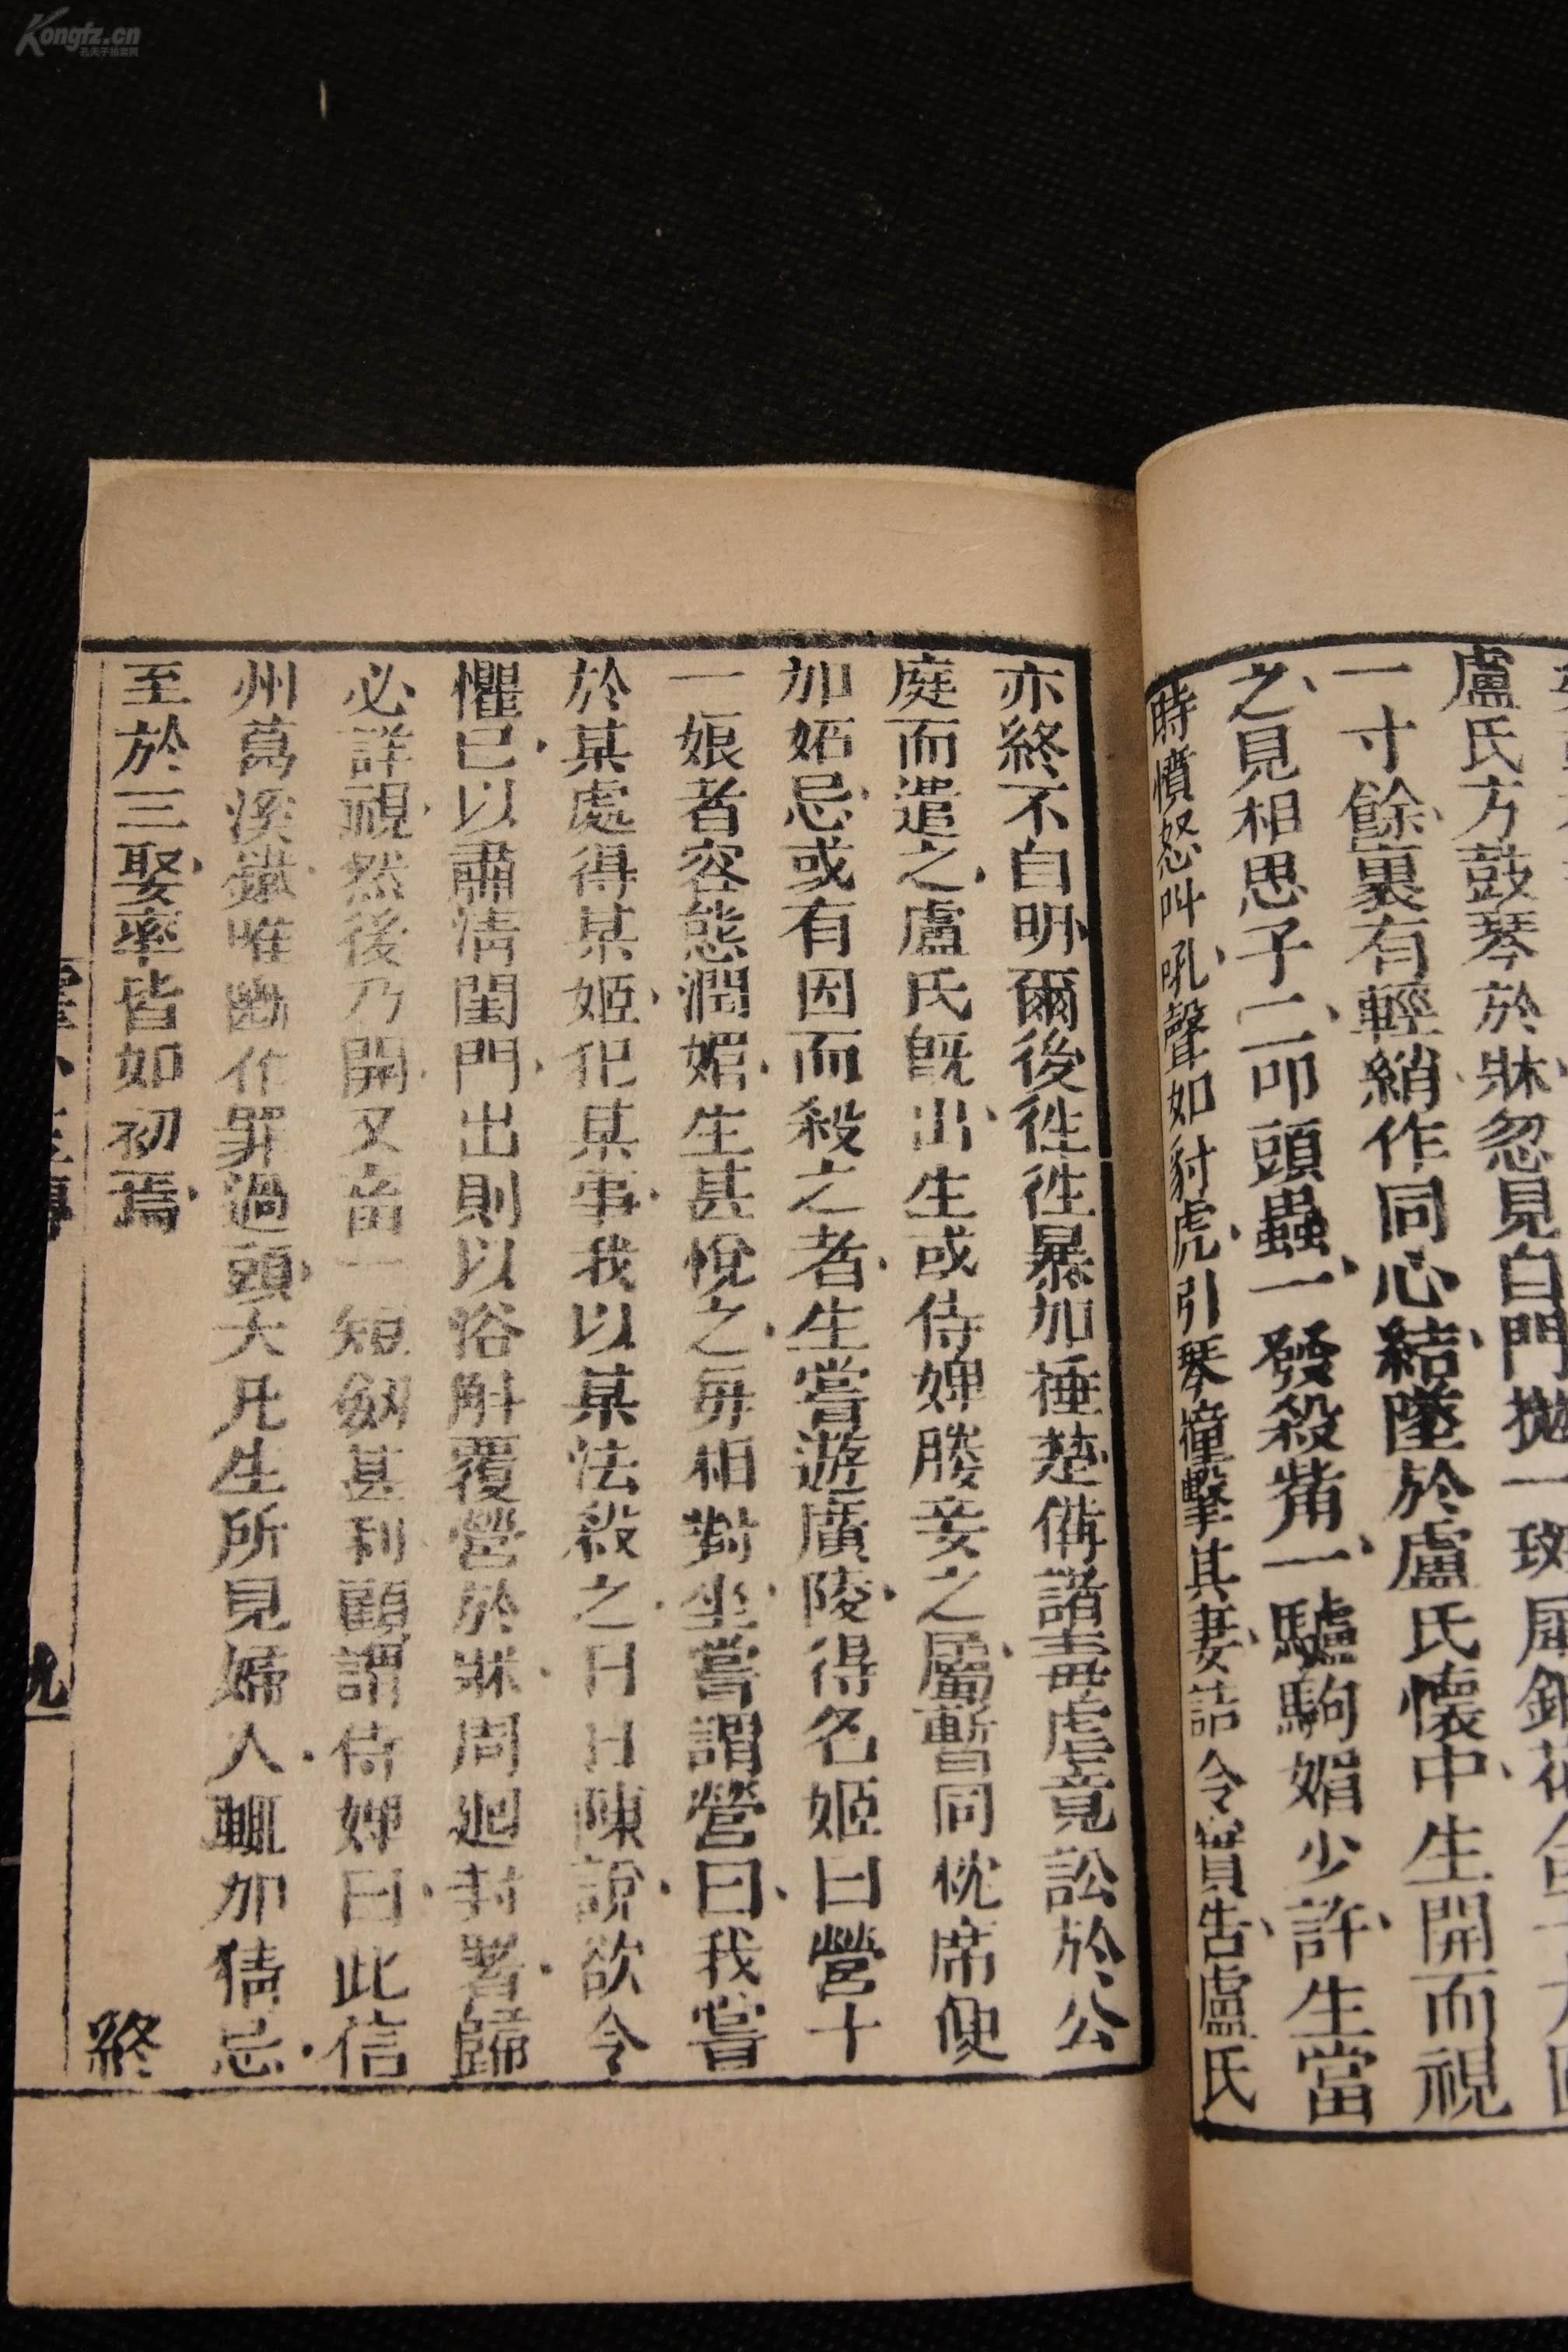 盧氏方鼓琴於牀忽見自門拋一斑犀鈿花合
一寸餘裏有輕綃作同心結墜於盧氏懷中生開而視
之見相思子二叩頭蟲一發殺觜一驢駒媚少許生當
時憤怒叫吼聲如豺虎引琴撞擊其妻詰令實告盧氏
亦終不自明爾後徃徃暴加捶楚備諸毒虐竟訟於公
庭而遣之盧氏既出生或侍婢媵妾之屬暫同枕席便
加妬忌或有因而殺之者生嘗遊廣陵得名姬曰營十
一娘者容態潤媚生甚悅之每相對坐嘗謂營曰我嘗
於某處得某姬犯某事我以某法殺之日日陳說欲令
懼已以肅清閨門出則以浴斛覆營於牀周迴封署歸
必詳視然後乃開又畜一短劒甚利顧謂侍婢曰此信
州葛溪鐵唯斷作罪過頭大凡生所見婦人輒加猜忌
至於三娶率皆如初焉
終
九
Kongfz.cn
孔夫子拍卖网